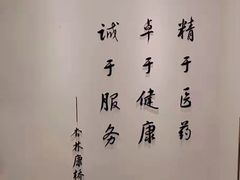 精于医药
卓于健康
诚于服务
——榆林康桥